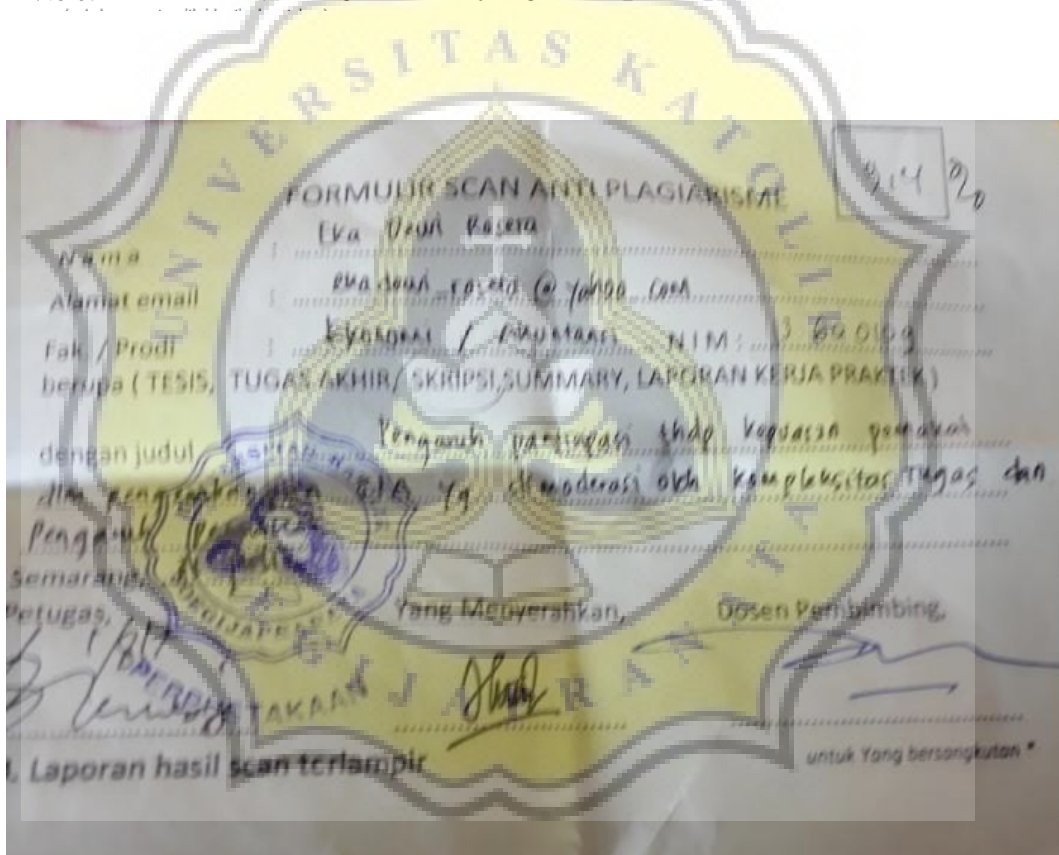 UNIVERSITAS KATOLIK
SOEGIJAPRANATA
FORMULIR SCAN ANTI PLAGIARISME
9,14 %
Nama : Eka Dewi Rosera
Alamat email : @ yahoo.com
Fak / Prodi : Ekonomi / Akuntansi NIM :
berupa ( TESIS, TUGAS AKHIR/ SKRIPSI,SUMMARY, LAPORAN KERJA PRAKTEK )
dengan judul Pengaruh partisipasi thdp kepuasan pemakai
dlm pengembangan SIA yg dimoderasi oleh kompleksitas Tugas dan
Pengaruh
Semarang,
Petugas, Yang Menyerahkan, Dosen Pembimbing,
PERPUSTAKAAN
. Laporan hasil scan terlampir
untuk Yang bersangkutan *